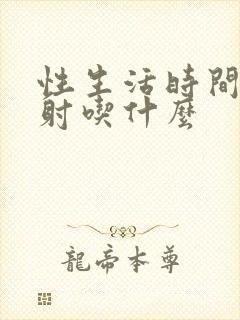 性生活時間
射喫什麽
龍帝本尊